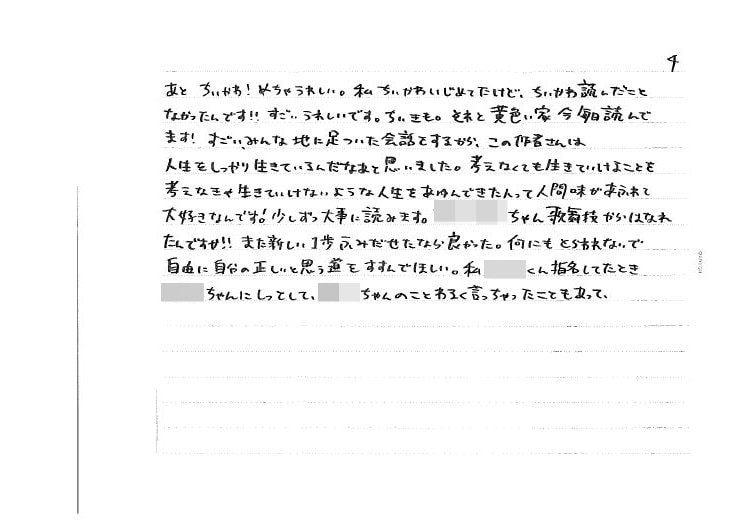 4
あと ちいかわ！めちゃうれしい。私 ちいかわいじめてたけど、ちいかわ読んだこと
なかったんです!! すごいうれしいです。ちいきも。それと 黄色い家 今 毎日読んで
ます！ すごい、みんな 地に足ついた会話をするから、この作者さんは
人生をしっかり生きているんだなあと思いました。考えなくても生きていけよことを
考えなきゃ生きていけないような人生をあゆんできた人って人間味があふれて
大好きなんです！少しずつ大事に読みます。 ちゃん 歌舞伎からはなれ
たんですか!! また新しい1歩ふみだせたなら良かった。何にもとらわれないで
自由に自分の正しいと思う道をすすんでほしい。私 くん指名してたとき
ちゃんにしっとして、 ちゃんのことわるく言っちゃったこともあって、